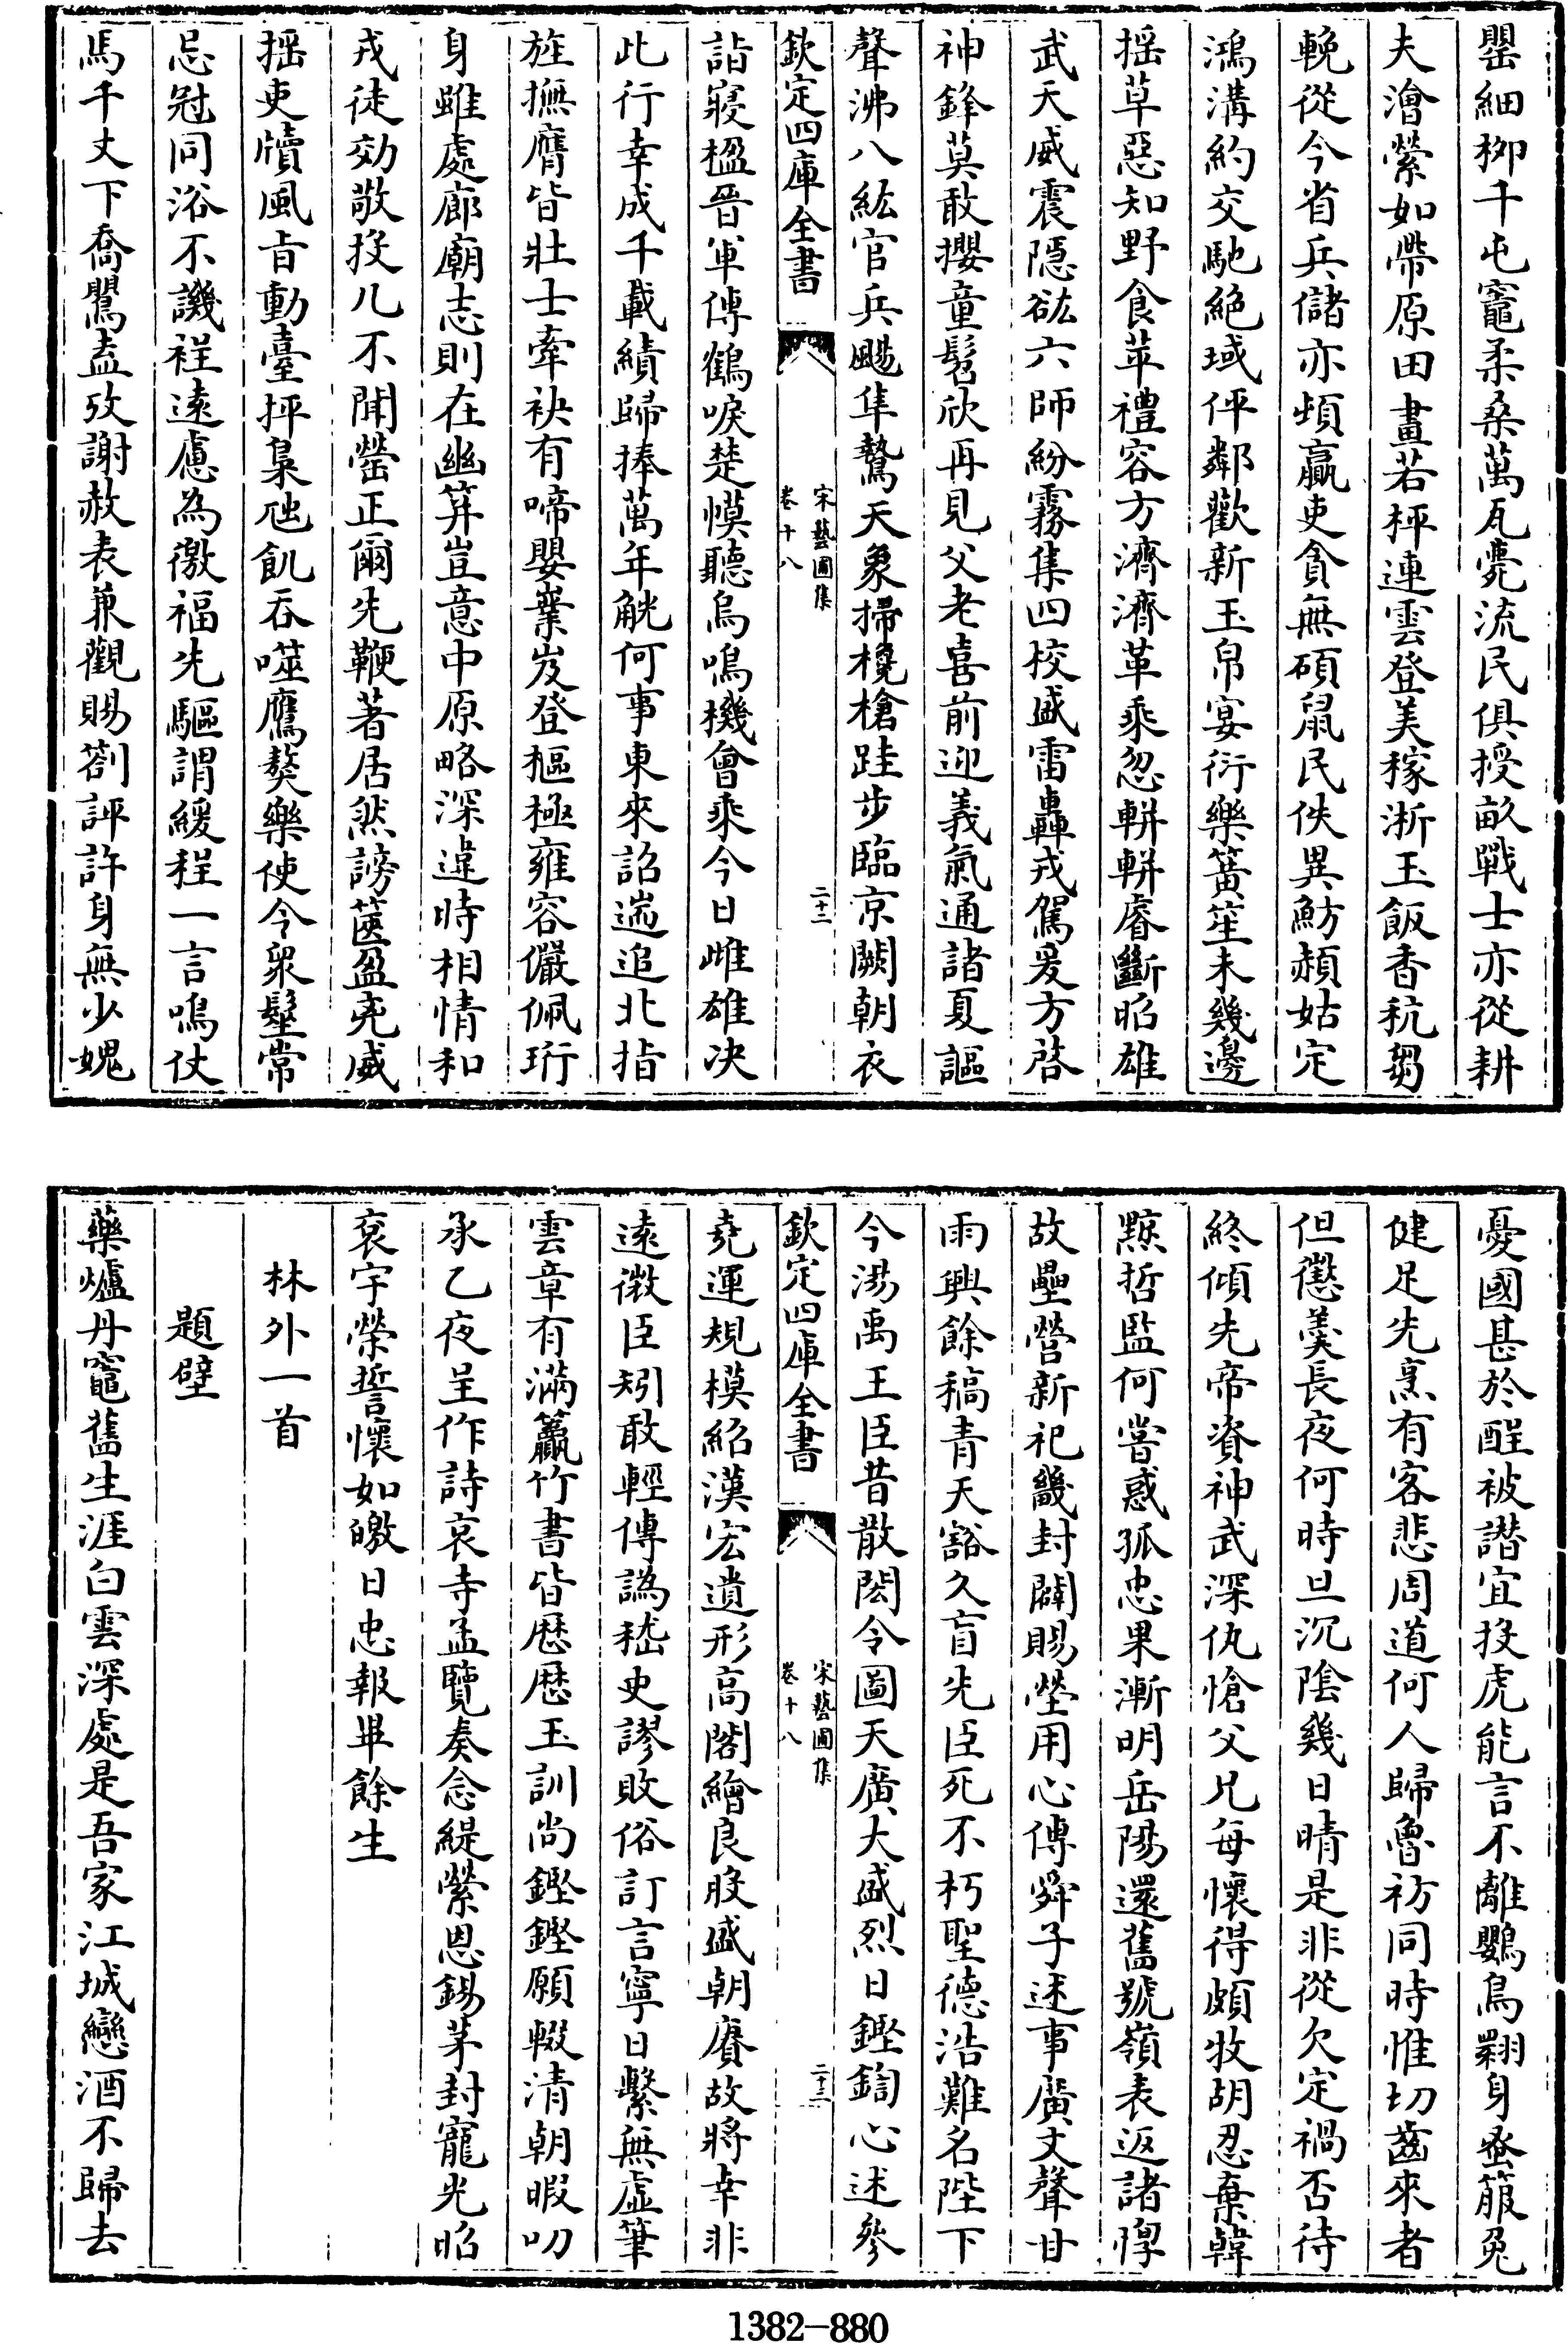 罌細栁千屯竈柔桑萬瓦甍流民俱授畝戰士亦從耕
夫澮縈如帶原田畫若枰連雲登美稼淅玉飯香秔芻
輓從今省兵儲亦頓贏吏貪無碩鼠民佚異魴赬姑定
鴻溝約交馳絶域伻鄰歡新玉帛宴衎樂簧笙未幾邊
揺草惡知野食苹禮容方濟濟革乘忽軿軿睿斷昭雄
武天威震隠谹六師紛霧集四校盛雷轟戎駕爰方啓
神鋒莫敢攖童髫欣再見父老喜前迎義氣通諸夏謳
聲沸八紘官兵颺隼鷙天象掃欃槍跬步臨京闕朝衣
欽定四庫全書
宋藝圃集
卷十八
二十二
詣寢楹晉軍傳鶴唳楚幙聽烏鳴機會乘今日雌雄决
此行幸成千載績歸捧萬年觥何事東來詔遄追北指
旌撫膺皆壯士牽袂有啼嬰業岌登樞極雍容儼佩珩
身雖處廊廟志則在幽并豈意中原略深違時相情和
戎徒効敬投几不聞罃正爾先鞭著居然謗篋盈兗威
揺吏牘風㫖動臺抨梟虺飢吞噬鷹獒樂使令衆髽常
忌冠同浴不譏裎遠慮為徼福先驅謂緩程一言鳴仗
馬千丈下喬鸎盍攷謝赦表兼觀賜劄評許身無少媿
憂國甚於酲被譖宜投虎能言不離鸚鳥翾身蚤箙兔
健足先烹有客悲周道何人歸魯祊同時惟切齒來者
但懲羹長夜何時旦沉陰幾日晴是非從欠定禍否待
終傾先帝資神武深仇愴父兄每懷得頗牧胡忍棄韓
黥哲監何嘗惑孤忠果漸明岳陽還舊號嶺表返諸惸
故壘營新祀畿封闢賜塋用心傳舜子述事廣文聲甘
雨興餘稿青天豁久盲先臣死不朽聖德浩難名陛下
今湯禹王臣昔散閎令圖天廣大盛烈日鏗鍧心述參
欽定四庫全書
宋藝圃集
卷十八
二十三
堯運規模紹漢宏遺形高閣繪良股盛朝賡故將幸非
逺微臣矧敢輕傳譌嵇史謬敗俗訂言寧日繫無虚筆
雲章有滿籯竹書皆歴歴玉訓尚鏗鏗願輟清朝暇叨
承乙夜呈作詩哀寺孟覽奏念緹縈恩錫茅封寵光昭
衮字榮誓懷如皦日忠報畢餘生
林外一首
題壁
藥爐丹竈舊生涯白雲深處是吾家江城戀酒不歸去
1382-880